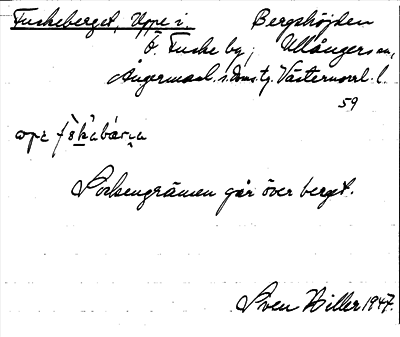 Fuskeberget, Uppe i Bergshöjden
Ö. Fuske by; Ullångers sn,
Ångermanl. s. doms.tg. Västernorrl. l.
59
Sockengränsen går över berget.
Sven Hiller 1947.